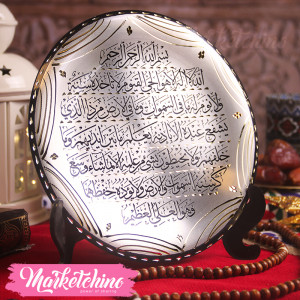 بسم الله الرحمن الرحيم
الله لا إله إلا هو الحي القيوم لا تأخذه سنة
ولا نوم له ما في السموات وما في الأرض من ذا الذي
يشفع عنده إلا بإذنه يعلم ما بين أيديهم وما
خلفهم ولا يحيطون بشيء من علمه إلا بما شاء وسع
كرسيه السموات والأرض ولا يؤده حفظهما
وهو العلي العظيم
Marketchino